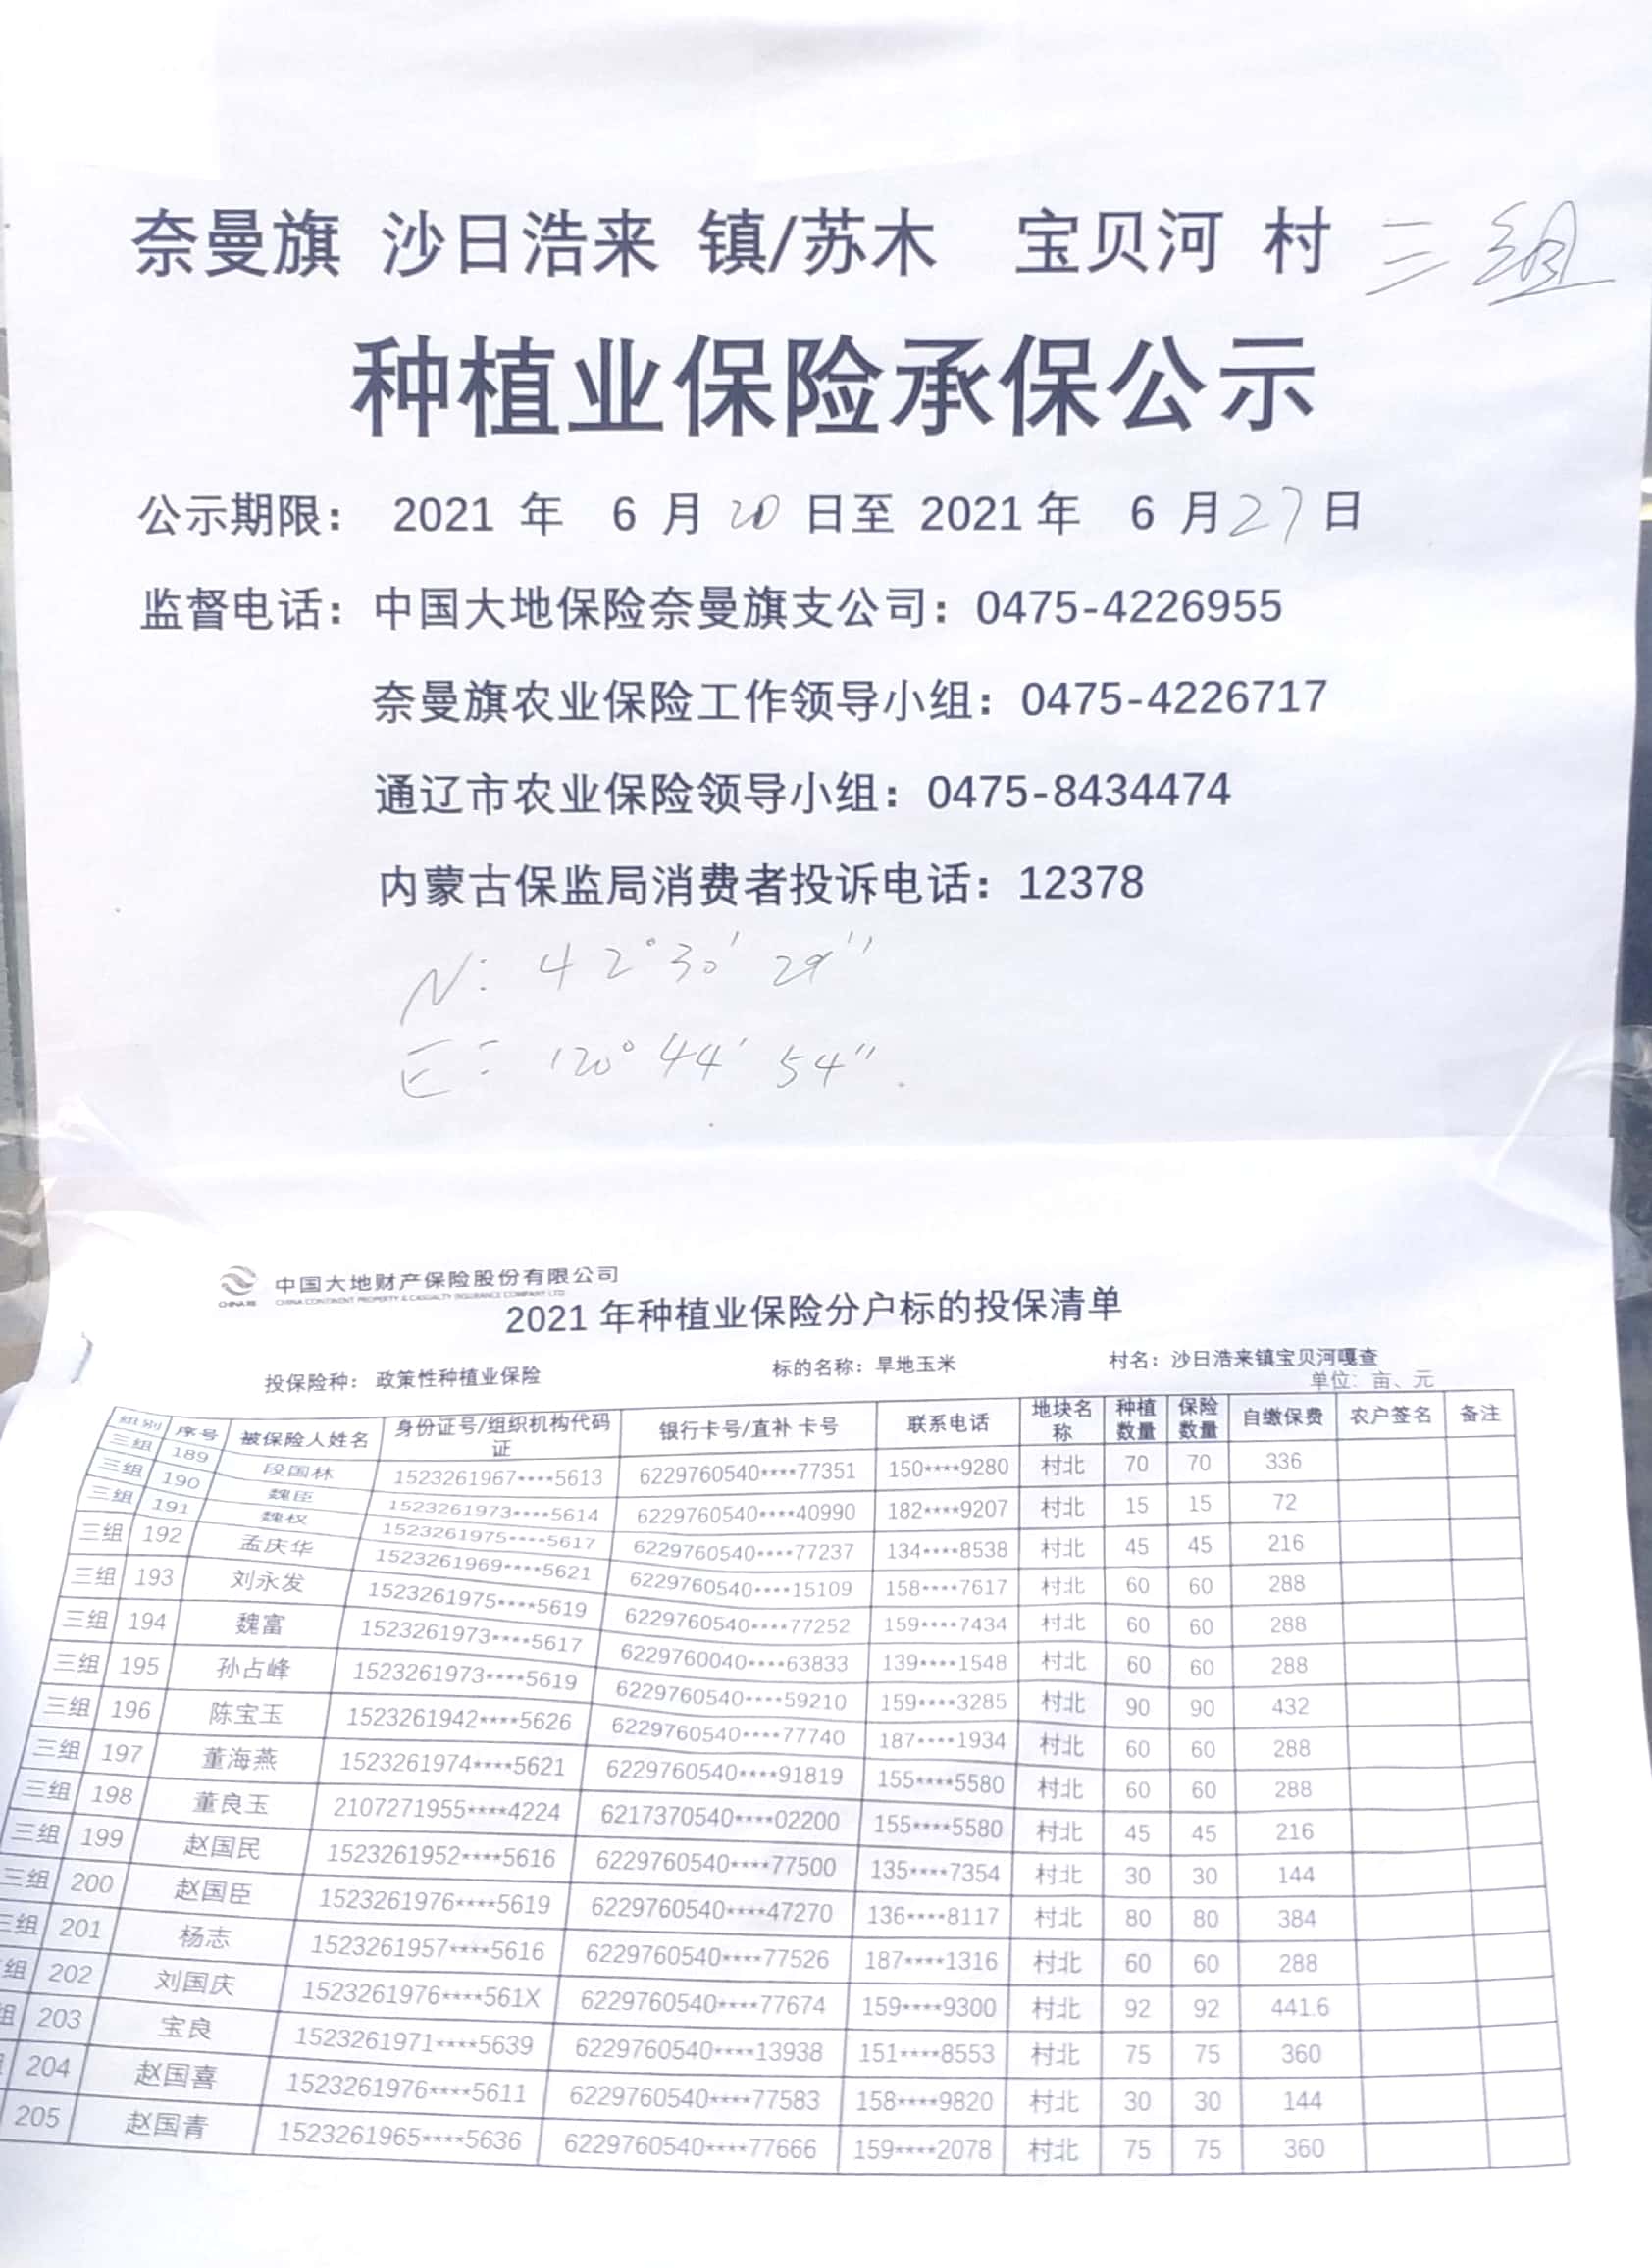 奈曼旗 沙日浩来 镇/苏木 宝贝河 村 三组
种植业保险承保公示
公示期限： 2021 年 6 月 20 日至 2021 年 6 月 27 日
监督电话：中国大地保险奈曼旗支公司：0475-4226955
奈曼旗农业保险工作领导小组：0475-4226717
通辽市农业保险领导小组：0475-8434474
内蒙古保监局消费者投诉电话：12378
N: 42°30′29″
E: 120°44′54″
中国大地财产保险股份有限公司
CHINA CONTINENT PROPERTY & CASUALTY INSURANCE COMPANY LTD
2021 年种植业保险分户标的投保清单
投保险种： 政策性种植业保险 标的名称：旱地玉米 村名：沙日浩来镇宝贝河嘎查
单位：亩、元
组别 序号 被保险人姓名 身份证号/组织机构代码证 银行卡号/直补卡号 联系电话 地块名称 种植数量 保险数量 自缴保费 农户签名 备注
三组 189 段国林 1523261967****5613 6229760540****77351 150****9280 村北 70 70 336
三组 190 魏臣 1523261973****5614 6229760540****40990 182****9207 村北 15 15 72
三组 191 魏权 1523261975****5617 6229760540****77237 134****8538 村北 45 45 216
三组 192 孟庆华 1523261969****5621 6229760540****15109 158****7617 村北 60 60 288
三组 193 刘永发 1523261975****5619 6229760540****77252 159****7434 村北 60 60 288
三组 194 魏富 1523261973****5617 6229760040****63833 139****1548 村北 60 60 288
三组 195 孙占峰 1523261973****5619 6229760540****59210 159****3285 村北 90 90 432
三组 196 陈宝玉 1523261942****5626 6229760540****77740 187****1934 村北 60 60 288
三组 197 董海燕 1523261974****5621 6229760540****91819 155****5580 村北 60 60 288
三组 198 董良玉 2107271955****4224 6217370540****02200 155****5580 村北 45 45 216
三组 199 赵国民 1523261952****5616 6229760540****77500 135****7354 村北 30 30 144
三组 200 赵国臣 1523261976****5619 6229760540****47270 136****8117 村北 80 80 384
三组 201 杨志 1523261957****5616 6229760540****77526 187****1316 村北 60 60 288
组 202 刘国庆 1523261976****561X 6229760540****77674 159****9300 村北 92 92 441.6
组 203 宝良 1523261971****5639 6229760540****13938 151****8553 村北 75 75 360
204 赵国喜 1523261976****5611 6229760540****77583 158****9820 村北 30 30 144
205 赵国青 1523261965****5636 6229760540****77666 159****2078 村北 75 75 360